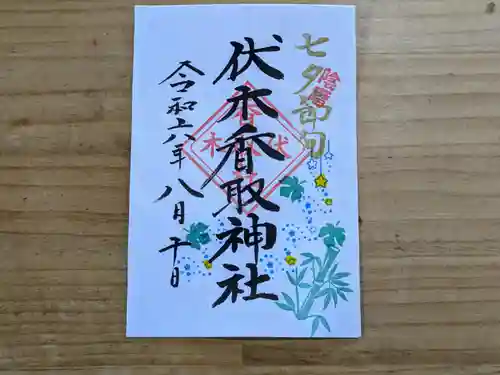 七夕節句
陰暦
伏木香取神社
令和六年八月十日